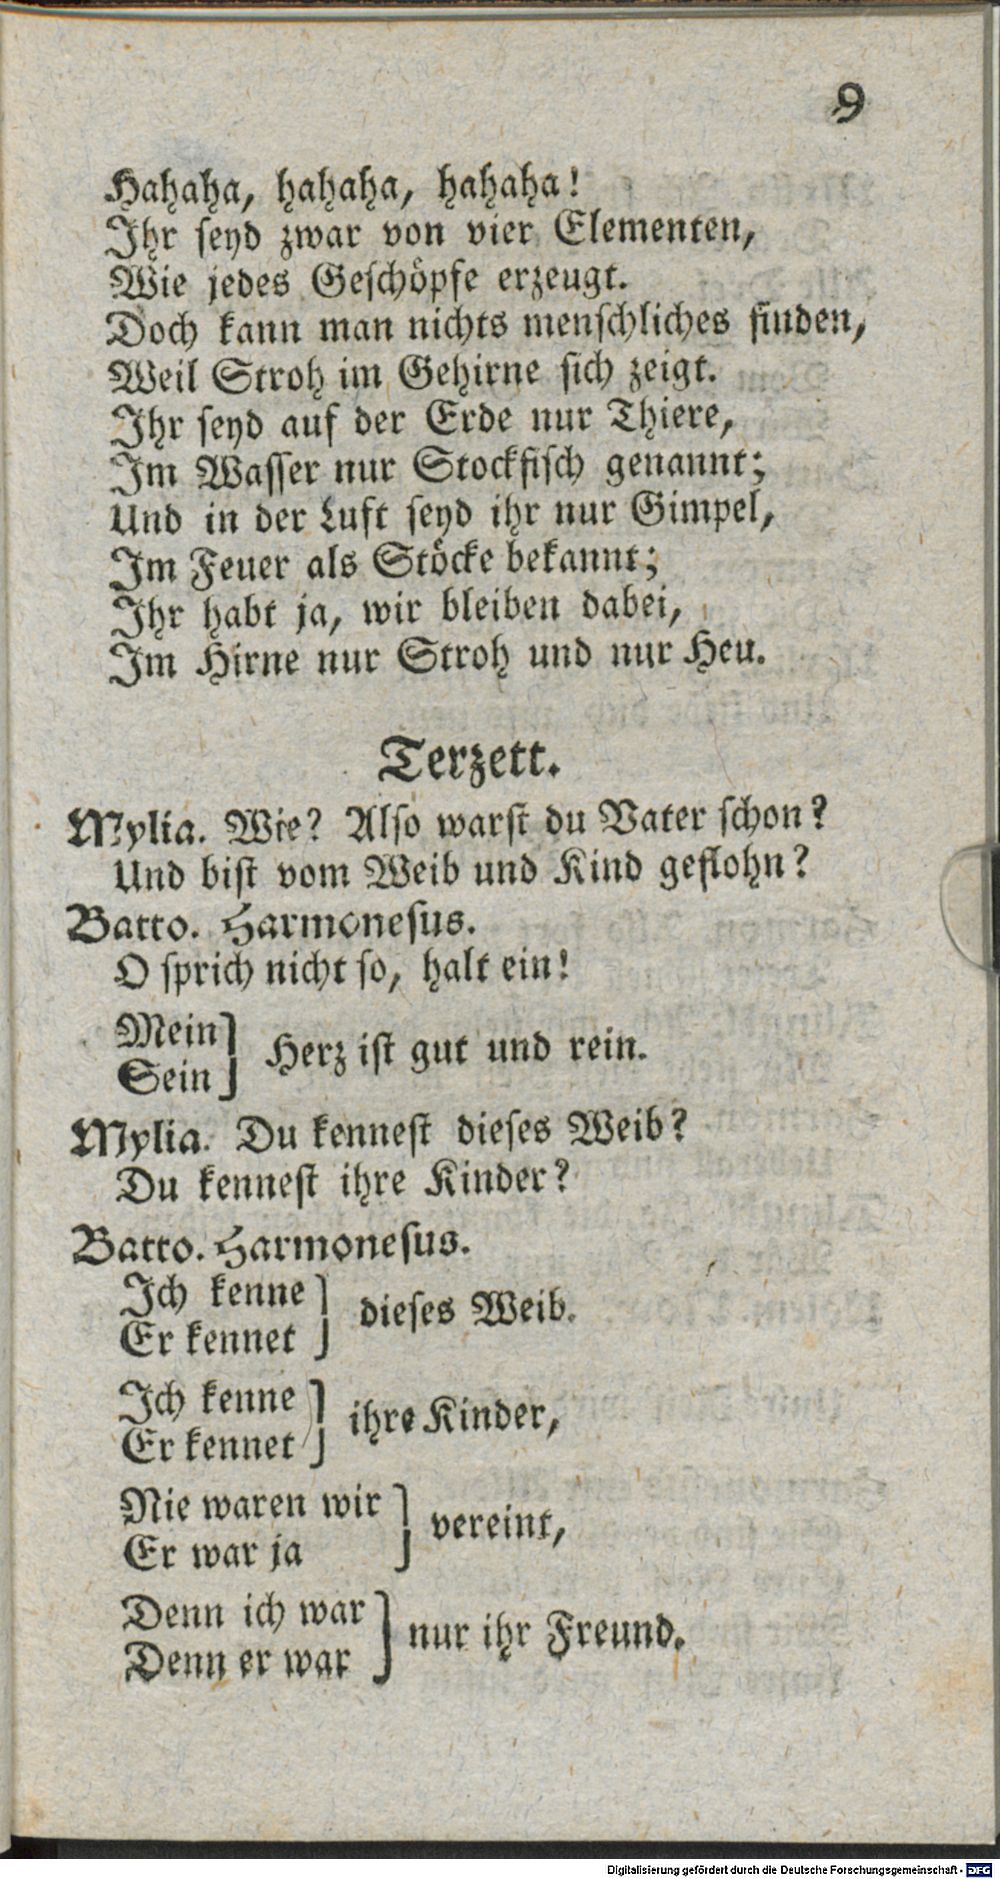 9
Hahaha, hahaha, hahaha!
Ihr seyd zwar von vier Elementen,
Wie jedes Geschöpfe erzeugt.
Doch kann man nichts menschliches finden,
Weil Stroh im Gehirne sich zeigt.
Ihr seyd auf der Erde nur Thiere,
Im Wasser nur Stockfisch genannt;
Und in der Luft seyd ihr nur Gimpel,
Im Feuer als Stöcke bekannt;
Ihr habt ja, wir bleiben dabei,
Im Hirne nur Stroh und nur Heu.
Terzett.
Mylia. Wie? Also warst du Vater schon?
Und bist vom Weib und Kind geflohn?
Batto. Harmonesus.
O sprich nicht so, halt ein!
Mein
Sein
Herz ist gut und rein.
Mylia. Du kennest dieses Weib?
Du kennest ihre Kinder?
Batto. Harmonesus.
Ich kenne
Er kennet
dieses Weib.
Ich kenne
Er kennet
ihre Kinder,
Nie waren wir
Er war ja
vereint,
Denn ich war
Denn er war
nur ihr Freund.
Digitalisierung gefördert durch die Deutsche Forschungsgemeinschaft - DFG